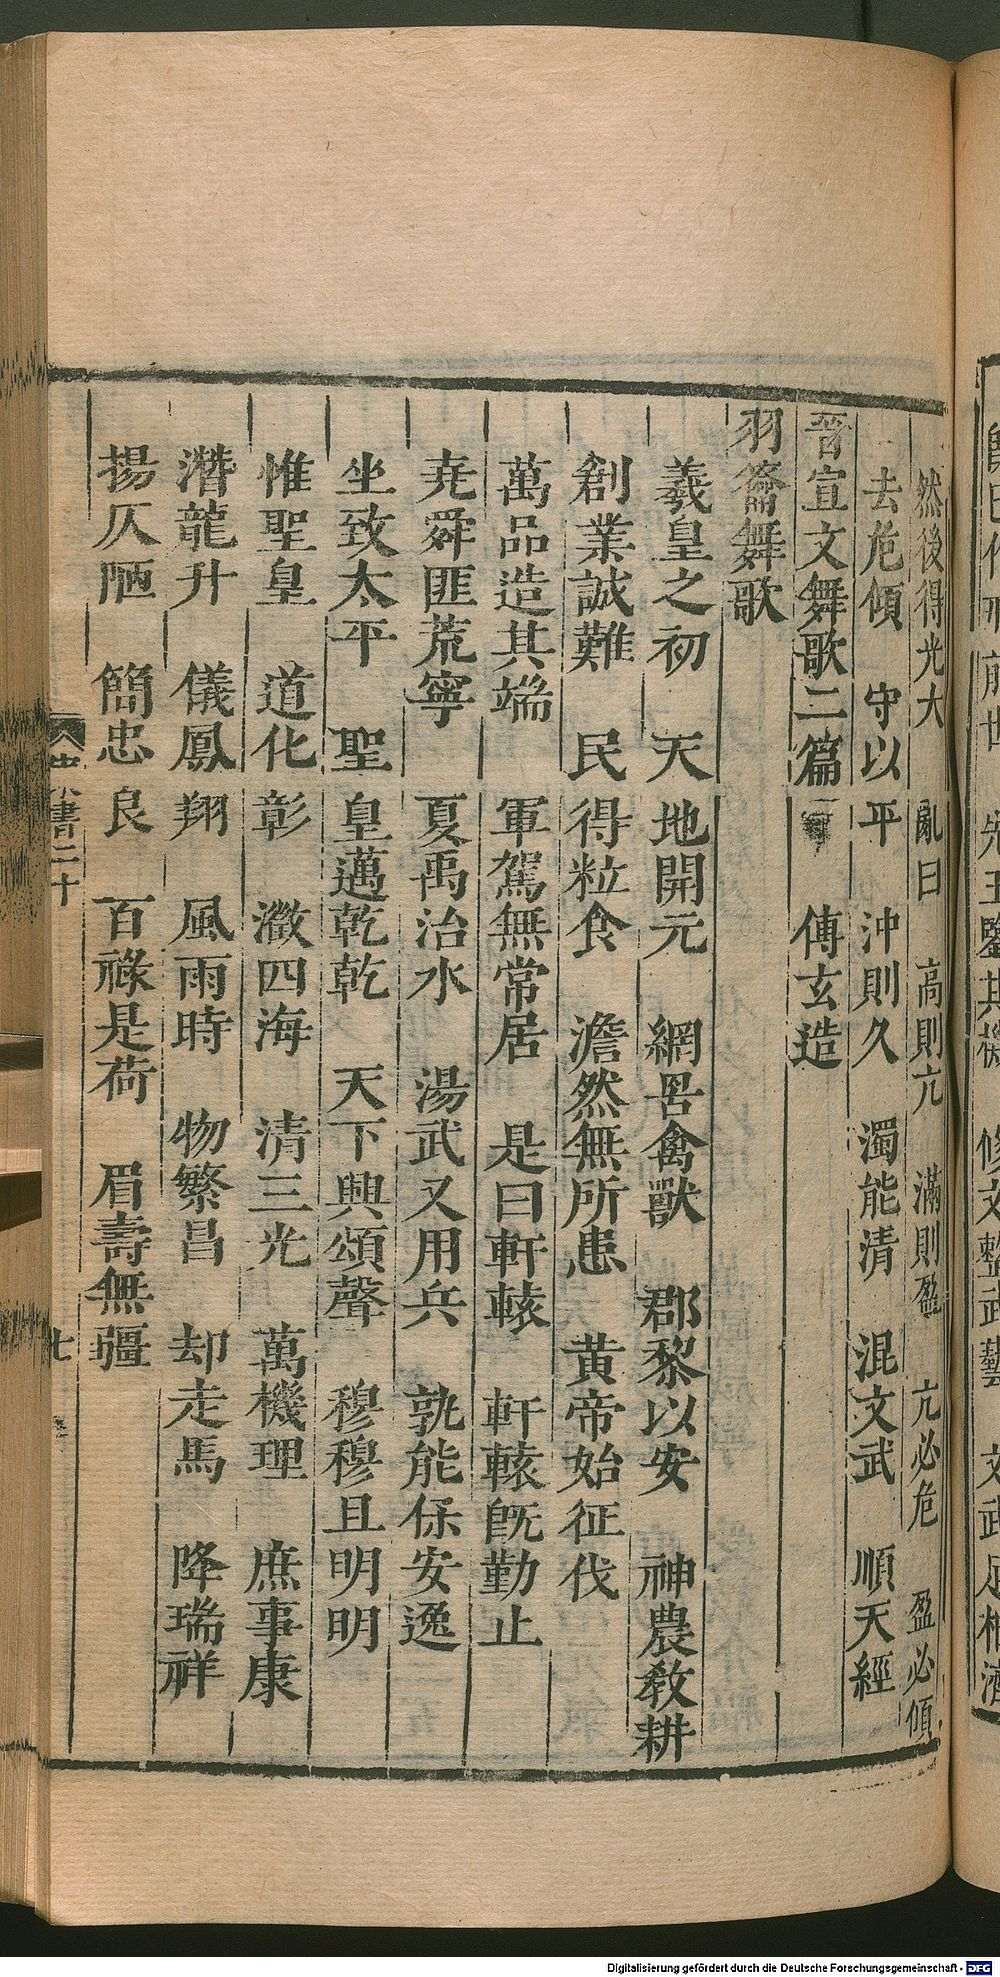 然後得光大　亂曰　高則亢　滿則盈　亢必危　盈必傾
去危傾　守以平　沖則久　濁能清　混文武　順天經
晉宣文舞歌二篇　傅玄造
羽籥舞歌
羲皇之初　天地開元　網罟禽獸　郡黎以安　神農教耕
創業誠難　民得粒食　澹然無所患　黃帝始征伐
萬品造其端　軍駕無常居　是曰軒轅　軒轅旣勤止
堯舜匪荒寧　夏禹治水　湯武又用兵　孰能保安逸
坐致太平　聖皇邁乾乾　天下興頌聲　穆穆且明明
惟聖皇　道化彰　澂四海　清三光　萬機理　庶事康
潛龍升　儀鳳翔　風雨時　物繁昌　却走馬　降瑞祥
揚仄陋　簡忠良　百祿是荷　眉壽無疆
書二十
七
世　先王鑒其機　修文整武藝　文武足相濟
Digitalisierung gefördert durch die Deutsche Forschungsgemeinschaft - DFG